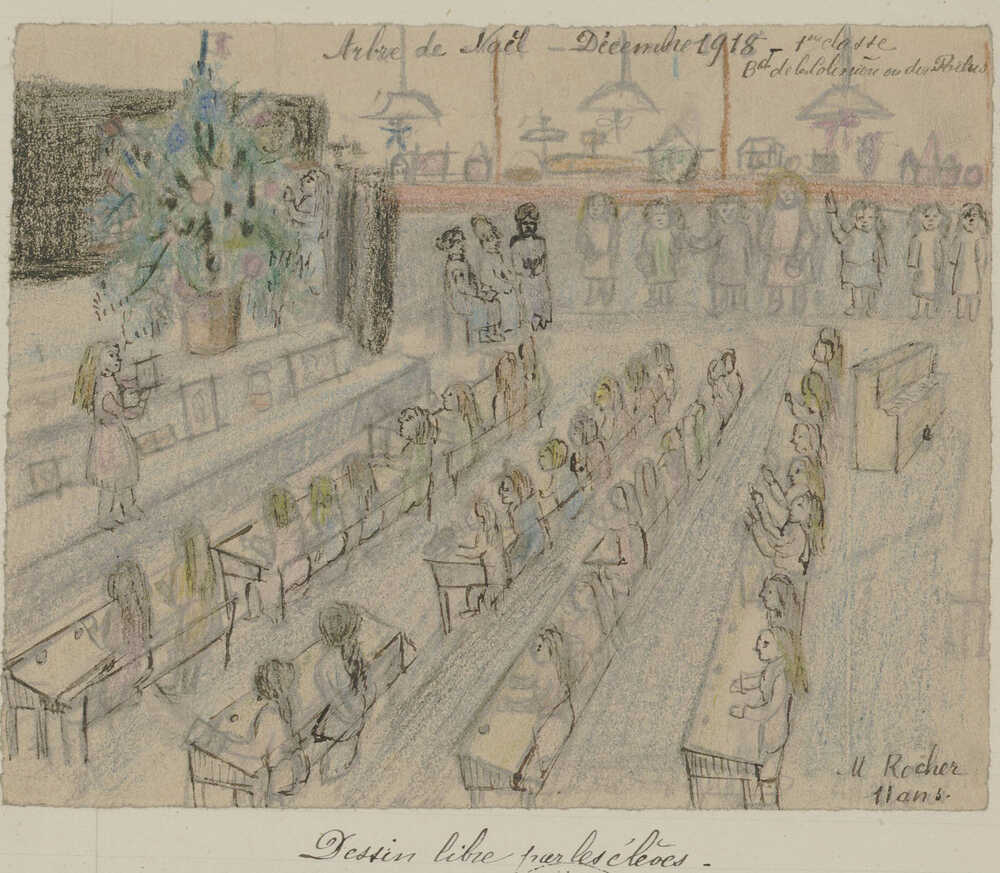 Arbre de Noël - Décembre 1918 - 1ère classe
Bat de la Colinière ou des
M Rocher
11 ans.
Dessin libre par les élèves -